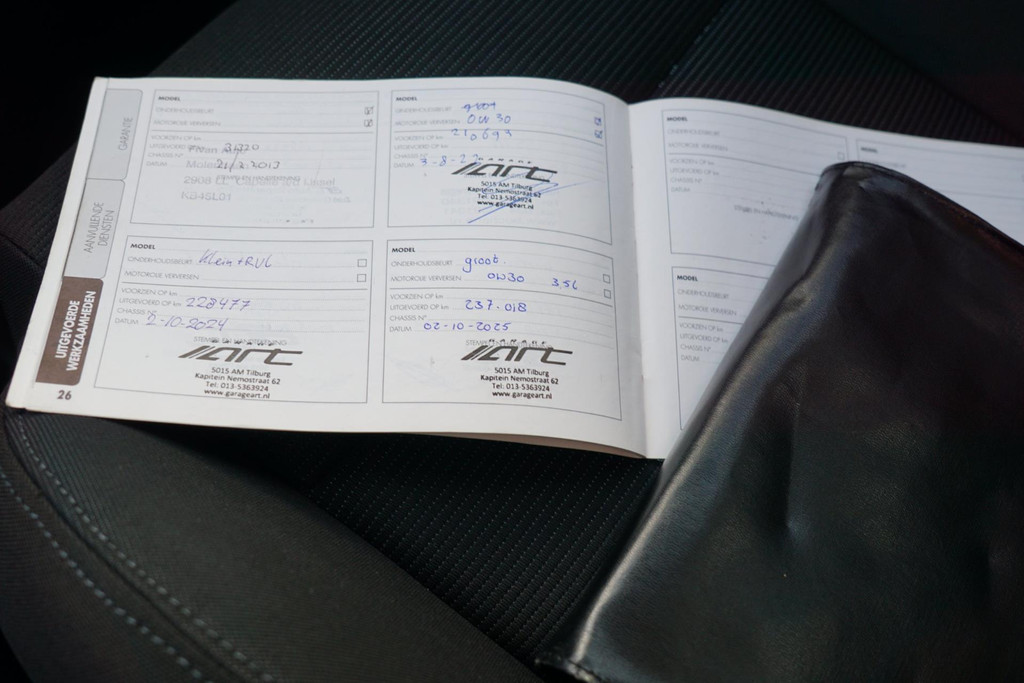 GARANTIE
AANVULLENDE
DIENSTEN
UITGEVOERDE
WERKZAAMHEDEN
26
MODEL
ONDERHOUDSBEURT
MOTOROLIE VERVERSEN
VOORZIEN OP km
UITGEVOERD OP km 31220
CHASSIS N°
DATUM 21/2 2013
MODEL
ONDERHOUDSBEURT groot
MOTOROLIE VERVERSEN 0W30
VOORZIEN OP km 210693
UITGEVOERD OP km
CHASSIS N°
DATUM 3-8-
ART
5015 AM Tilburg
Kapitein Nemostraat 62
Tel: 013-5363924
www.garageart.nl
MODEL
ONDERHOUDSBEURT Klein + RUL
MOTOROLIE VERVERSEN
VOORZIEN OP km
UITGEVOERD OP km 228477
CHASSIS N°
DATUM 2-10-2024
STEMPEL EN HANDTEKENING
ART
5015 AM Tilburg
Kapitein Nemostraat 62
Tel: 013-5363924
www.garageart.nl
MODEL
ONDERHOUDSBEURT groot
MOTOROLIE VERVERSEN 0W30 3,5L
VOORZIEN OP km
UITGEVOERD OP km 237.018
CHASSIS N°
DATUM 02-10-2025
ART
5015 AM Tilburg
Kapitein Nemostraat 62
Tel: 013-5363924
www.garageart.nl
MODEL
ONDERHOUDSBEURT
MOTOROLIE VERVERSEN
VOORZIEN OP km
UITGEVOERD OP km
CHASSIS N°
DATUM
MODEL
MODEL
ONDERHOUDSBEURT
MOTOROLIE VERVERSEN
VOORZIEN OP km
UITGEVOERD OP km
CHASSIS N°
DATUM